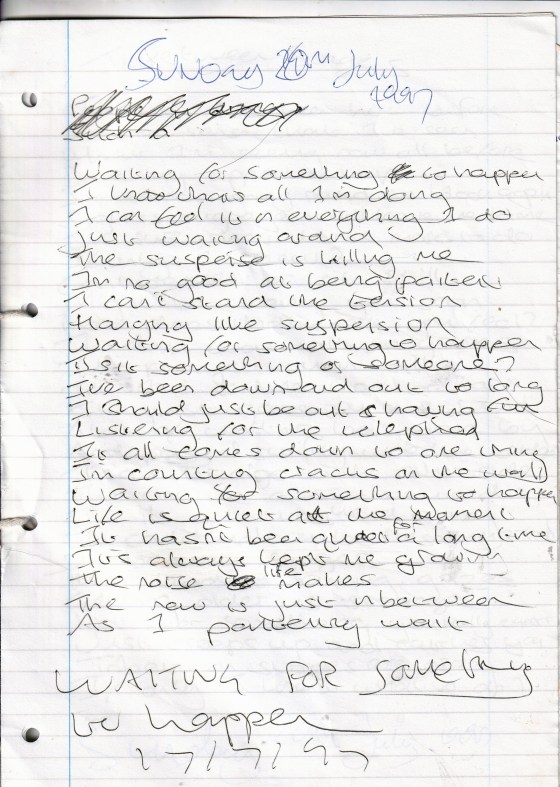 Sunday 20th July
1997
Waiting for something to happen
I know that's all I'm doing
I can feel it in everything I do
Just waiting around
The suspense is killing me
I'm no good at being patient
I can't stand the tension
Hanging like suspension
Waiting for something to happen
Is it something or someone?
I've been down and out to long
I should just be out & having fun
Listening for the telephone
It all comes down to one thing
I'm counting cracks on the wall
Waiting for something to happen
Life is quiet at the moment
It hasn't been quiet for a long time
It's always kept me
The noise life makes
The now is just inbetween
As I patiently wait
WAITING FOR something
to happen
17/7/97